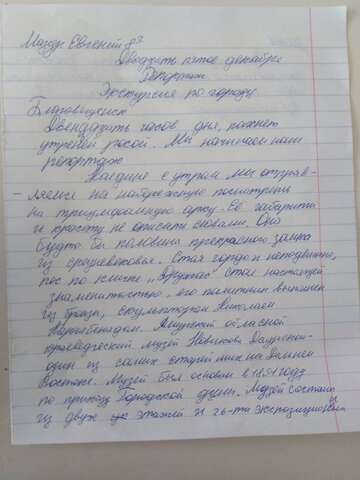 Мазур Евгений 8З
Двадцать пятое декабря
Репортаж
Экскурсия по городу.
Благовещенск
Двенадцать часов дня, пахнет
утреней росой. Мы начинаем наш
репортаж
с утра мы отправ-
ляемся на набережную посмотреть
на триумфальную арку. Её габариты
и красоту не описать словами. Она
будто бы половина прекрасного замка
из средневековья. Стоя гордо и неподвижно,
пёс по кличке "Дружок" стал настоящей
знаменитостью, его памятник выполнен
из бронзы, скульптором Николаем
Карнабедом. Амурский областной
краеведческий музей Новикова Даурского-
один из самых старейших на Дальнем
Востоке. Музей был основан в 1891 году
по приказу Городской думы. Музей состоит
из двух этажей и 26-ти экспозиционных